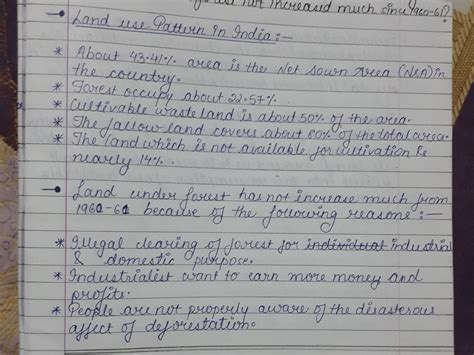 not increased much since 1960-61?
Land use Pattern in India:-
* About 43.41% area is the Net Sown Area (NSA) in
the country.
* Forest occupy about 22.57%.
* Cultivable waste land is about 50% of the area.
* The fallow land covers about 80% of the total area.
* The land which is not available for cultivation is
nearly 14%.
Land under forest has not increase much from
1960-61 because of the following reasons:-
* Illegal clearing of forest for individual industrial
& domestic purpose.
* Industrialist want to earn more money and
profits.
* People are not properly aware of the disasterous
affect of deforestation.